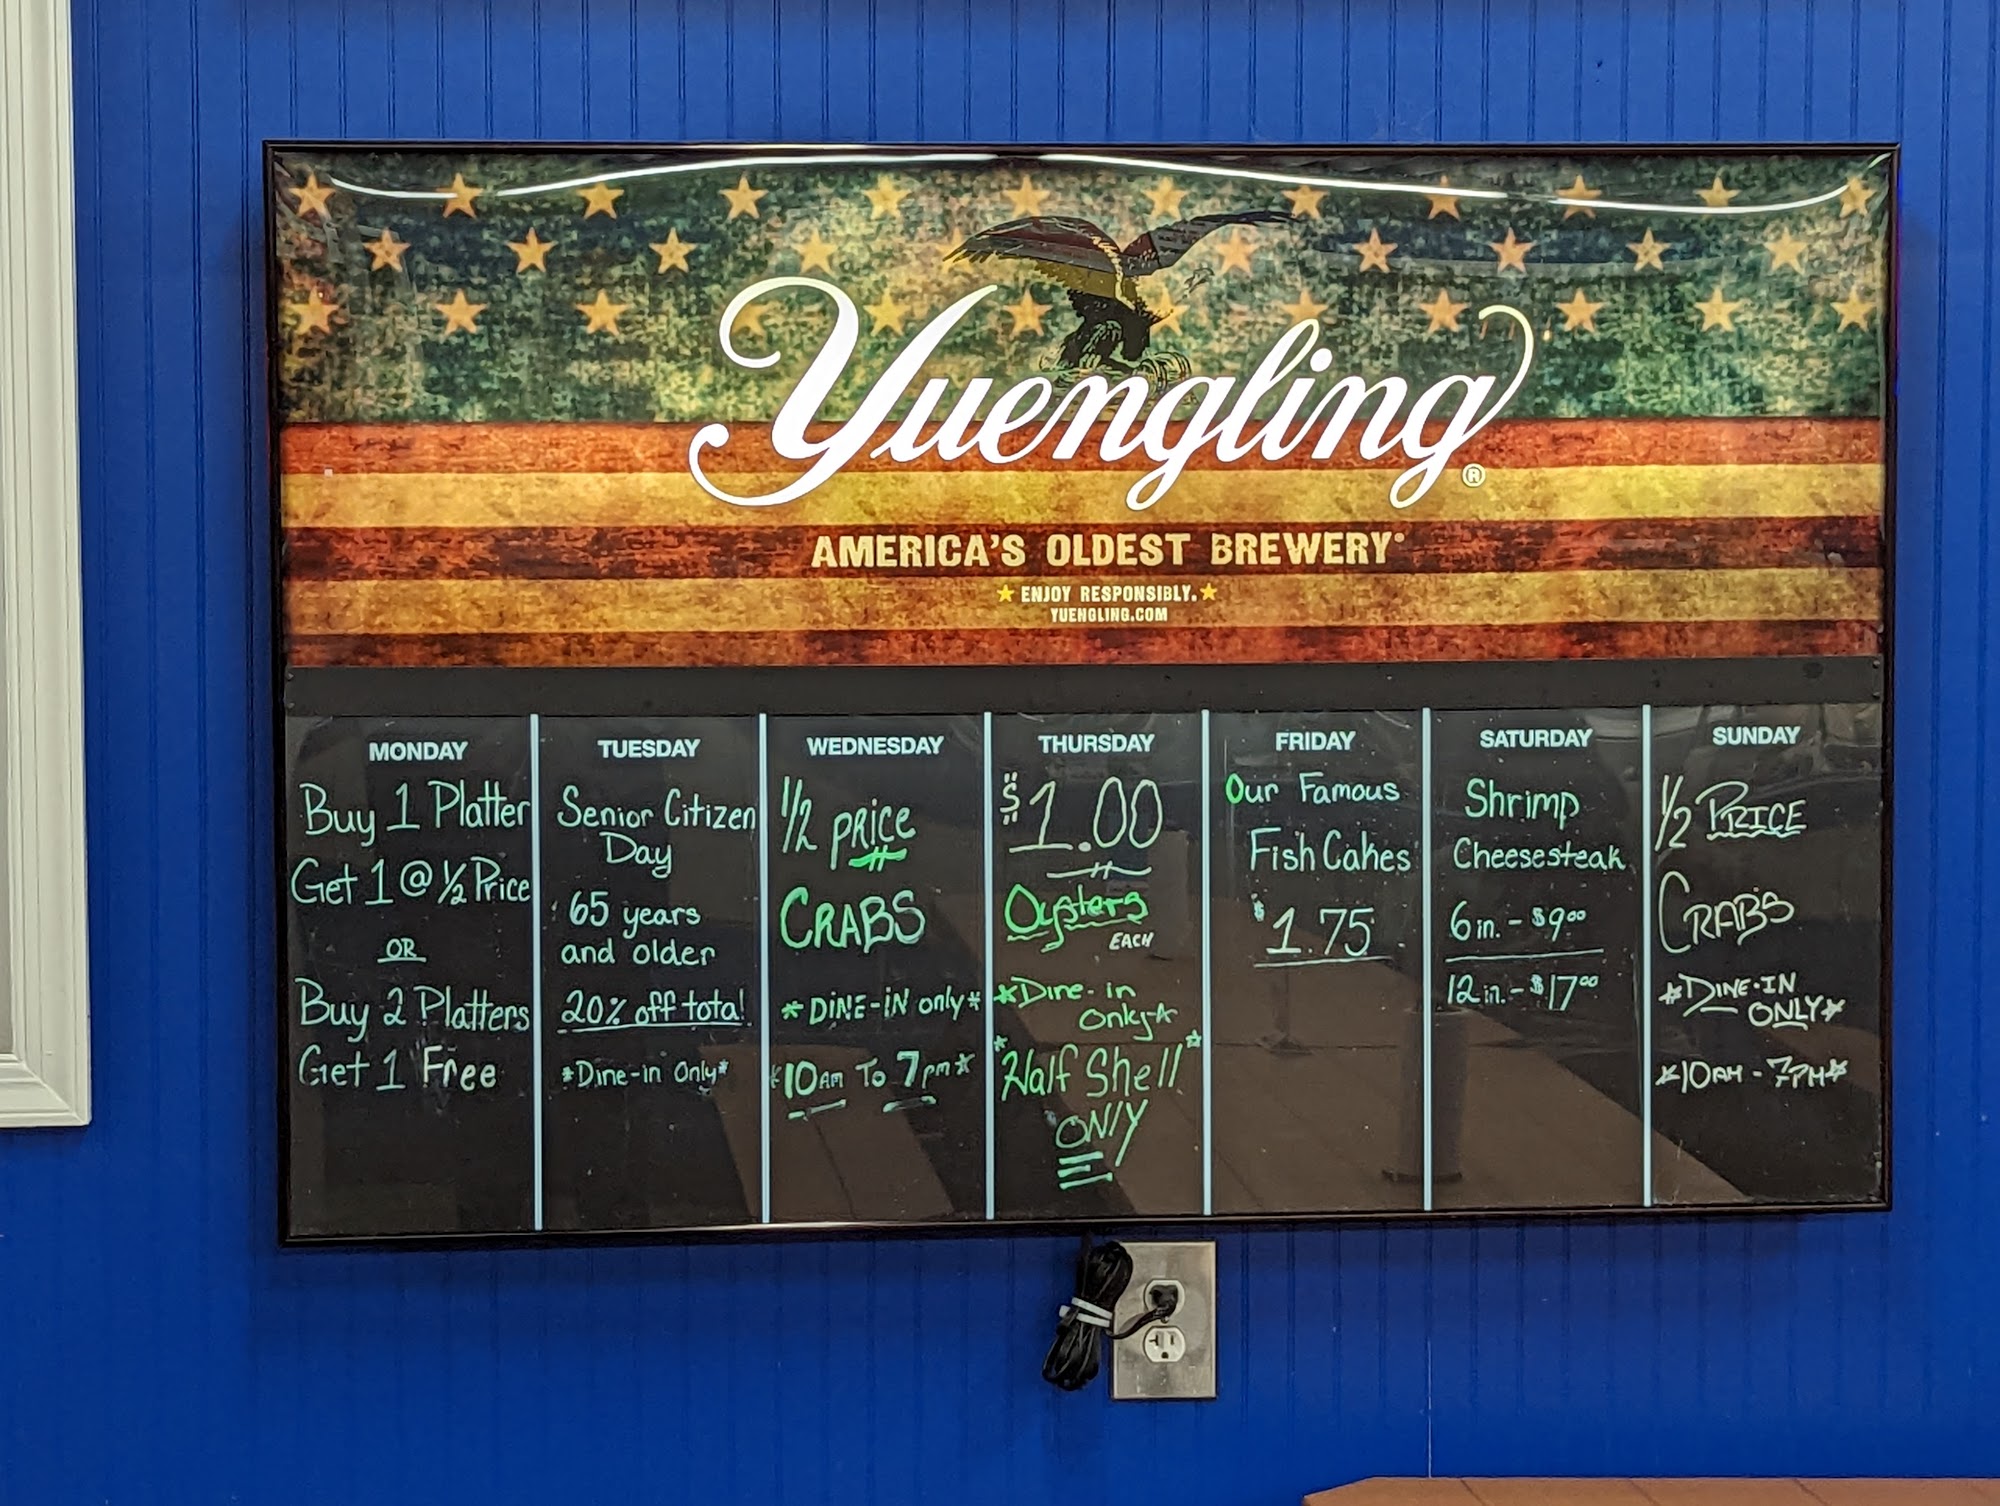 Yuengling®
AMERICA'S OLDEST BREWERY®
ENJOY RESPONSIBLY.
YUENGLING.COM
MONDAY
Buy 1 Platter
Get 1 @ 1/2 Price
OR
Buy 2 Platters
Get 1 Free
TUESDAY
Senior Citizen
Day
65 years
and older
20% off total!
*Dine-in Only*
WEDNESDAY
1/2 price
CRABS
*DINE-IN only*
*10AM To 7pm*
THURSDAY
$1.00
Oysters
EACH
*Dine-in
Only*
*Half Shell*
ONLY
FRIDAY
Our Famous
Fish Cakes
$1.75
SATURDAY
Shrimp
Cheesesteak
6 in. - $9.00
12 in. - $17.00
SUNDAY
1/2 PRICE
CRABS
*DINE-IN
ONLY*
*10AM - 7PM*